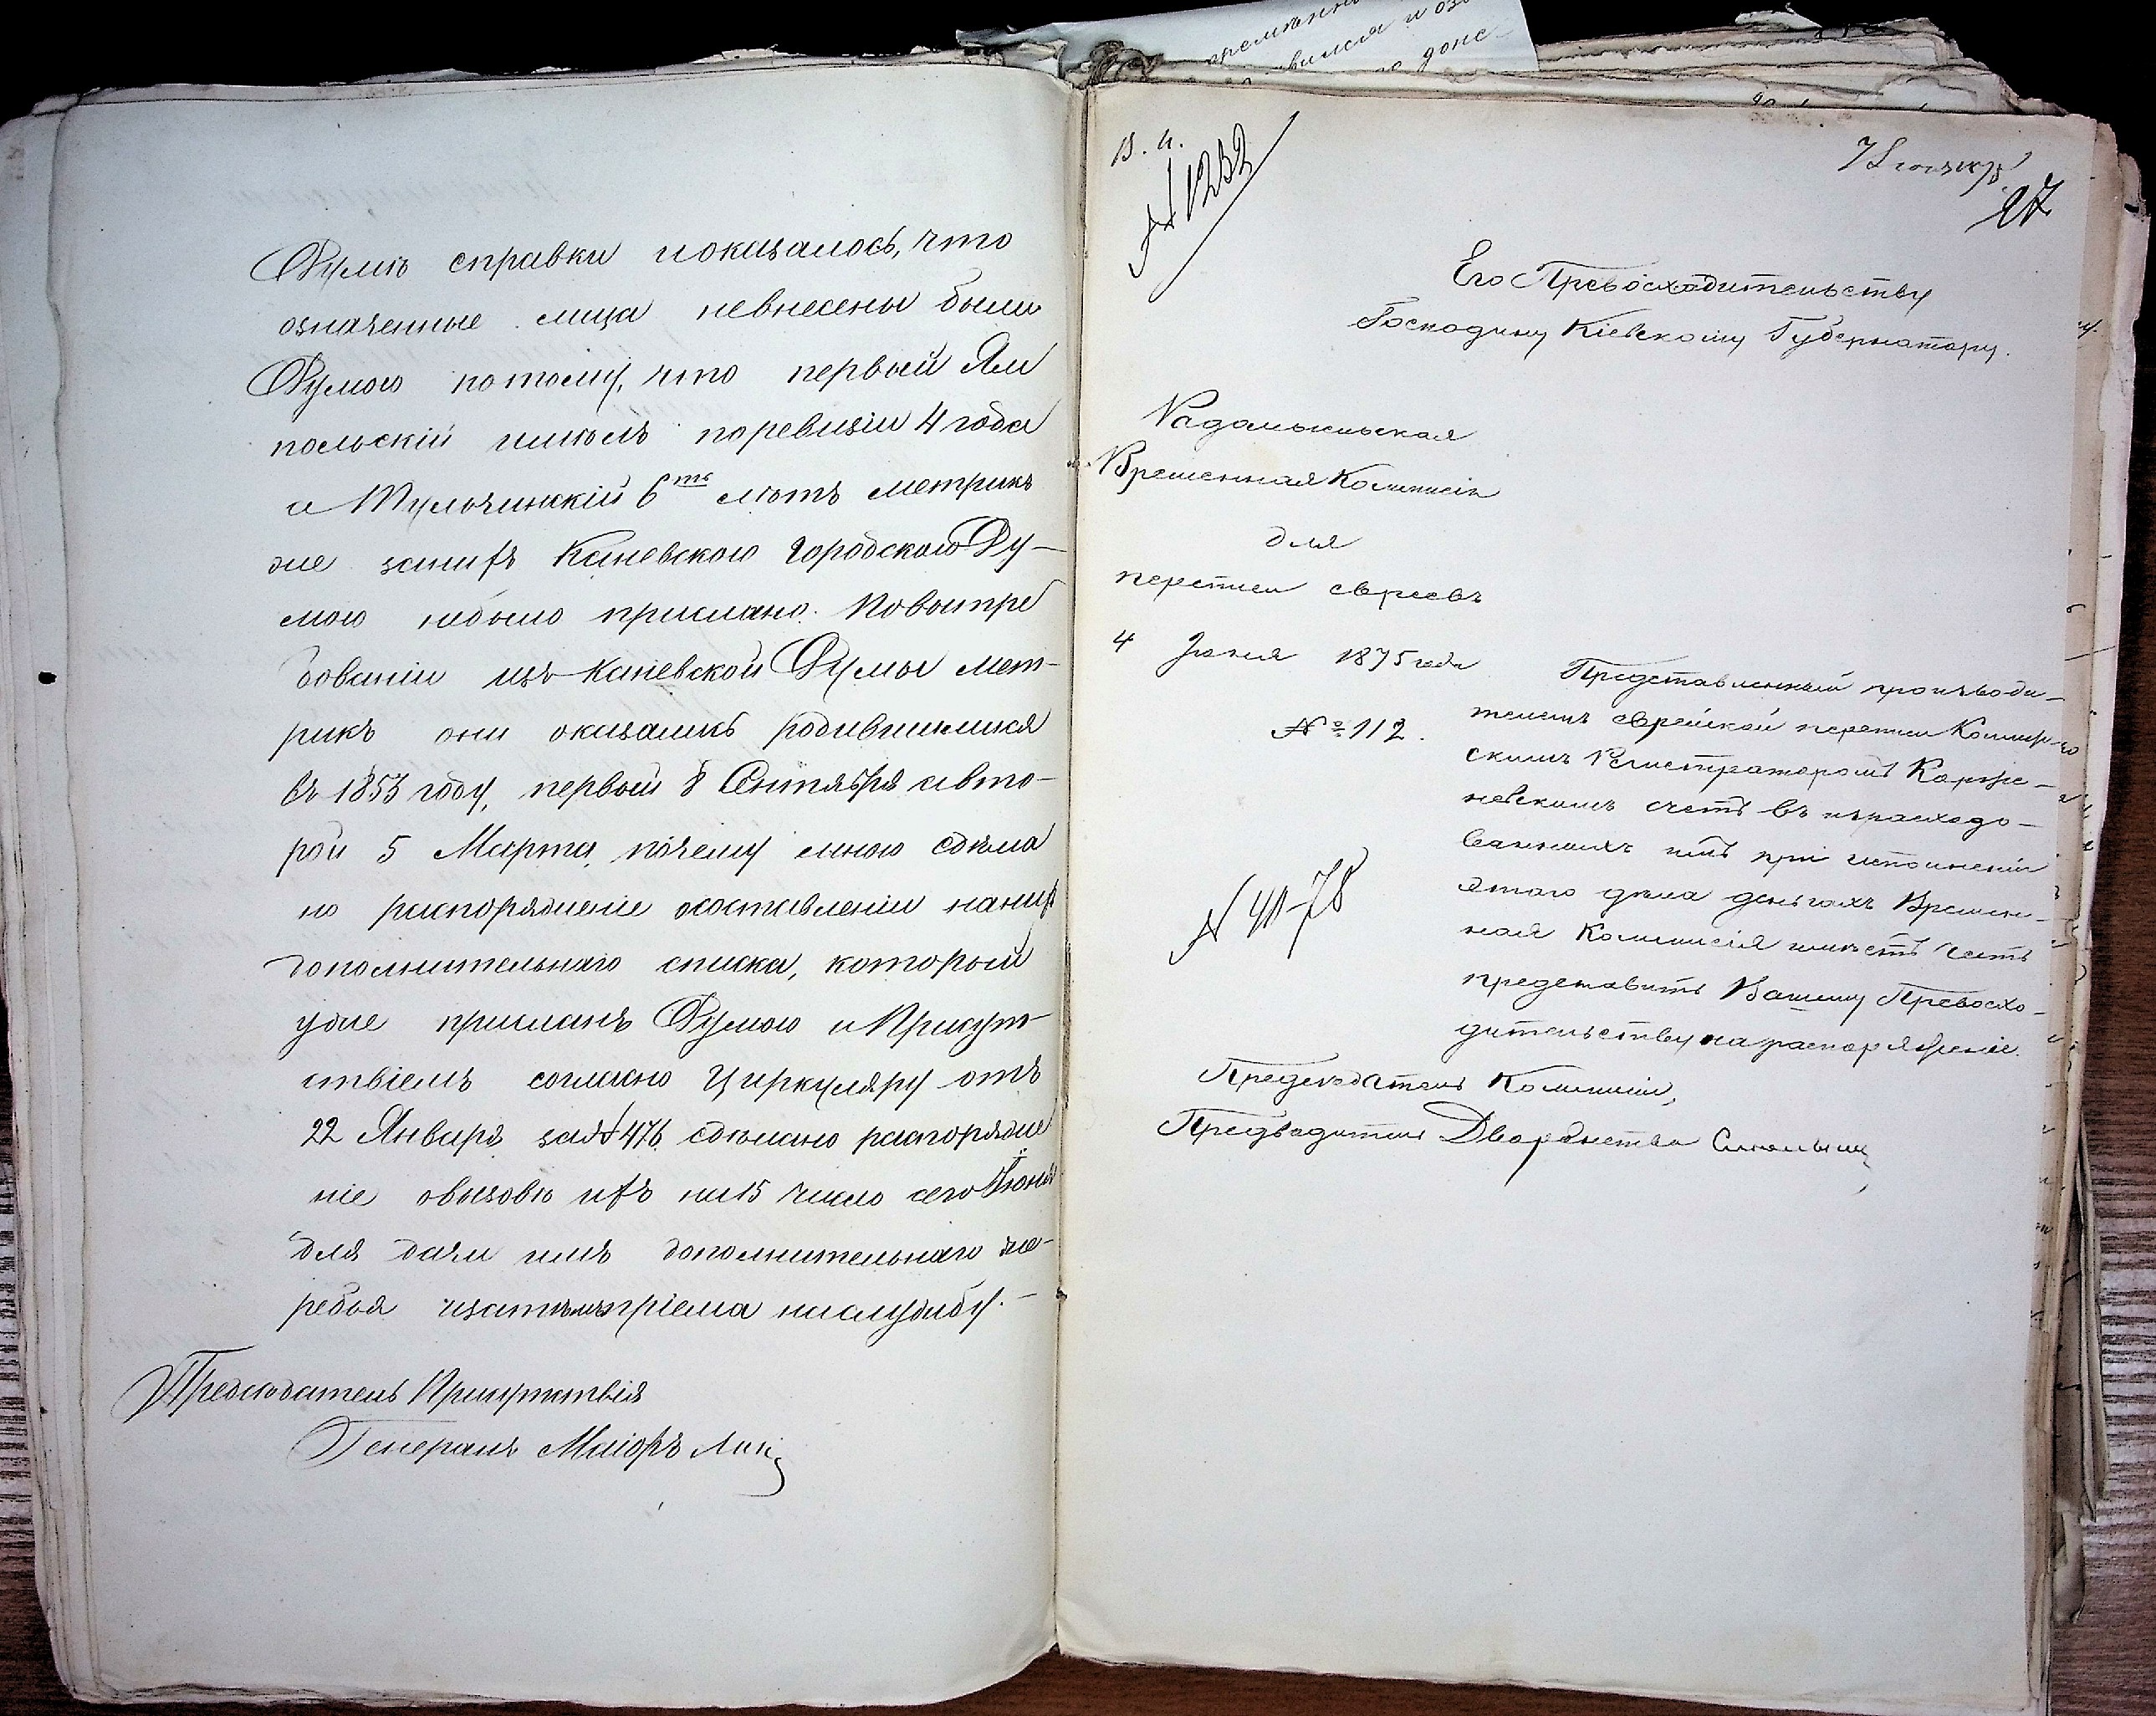 Думѣ справки показалось, что
означенные лица невнесены были
Думою потому, что первый Ям
польскій имѣлъ поревизіи 4 года
а Тульчинскій 6ть лѣтъ метрикъ
же заних Каневскою городскою Ду-
мою небыло прислано. Повытре
бованіи изъ Каневской Думы мет-
рикъ они оказались родившимися
въ 1853 году, первый 8 Сентября авто-
рой 5 Марта, почему мною сдѣла
но распоряженіе осоставленіи наних
дополнительнаго списка, который
уже присланъ Думою и Присут
ствіемъ согласно Циркуляру отъ
22 Января за№ 476 сдѣлано распоряже
ніе овызовѣ ихъ на 15 число сего Іюня
для дачи имъ дополнительнаго же-
ребья изатѣмъ пріема наслужбу.
Предсѣдатель Присутствія
Генералъ Маіоръ
В. И.
№ 1232
27
Его Превосходительству
Господину Кіевскому Губернатору.
Радомысльская
Временная Коммисія
для
переписи евреевъ
4 Іюня 1875 года
№ 112.
Представленный производи-
телемъ еврейской переписи Коллеж-
скимъ Регистраторомъ Корже-
невскимъ счетъ въ израсходо-
ванныхъ имъ при исполненіи
этого дѣла деньгахъ Времен-
ная Коммисія имѣетъ честь
представить Вашему Превосхо-
дительству на распоряженіе.
№ 41-78
Предсѣдатель Коммисіи,
Предводитель Дворянства